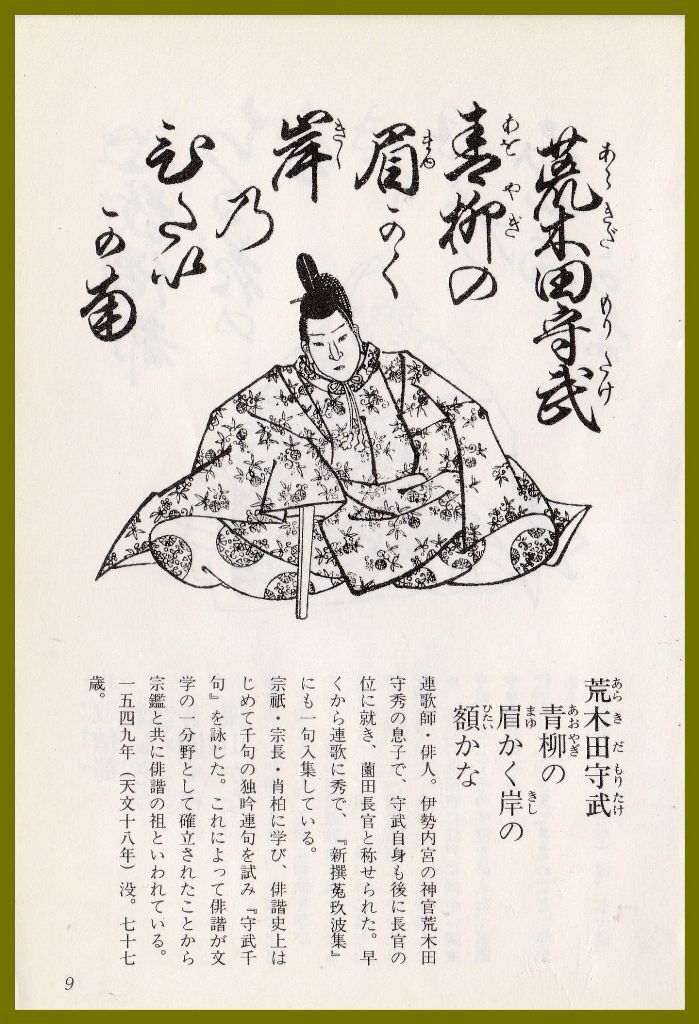 荒木田守武
青柳の
眉かく
岸
乃
ひたい
かな
荒木田守武
青柳の
眉かく岸の
額かな
連歌師・俳人。伊勢内宮の神官荒木田
守秀の息子で、守武自身も後に長官の
位に就き、薗田長官と称せられた。早
くから連歌に秀で、『新撰菟玖波集』
にも一句入集している。
宗祇・宗長・肖柏に学び、俳諧史上は
じめて千句の独吟連句を試み『守武千
句』を詠じた。これによって俳諧が文
学の一分野として確立されたことから
宗鑑と共に俳諧の祖といわれている。
一五四九年（天文十八年）没。七十七
歳。
9